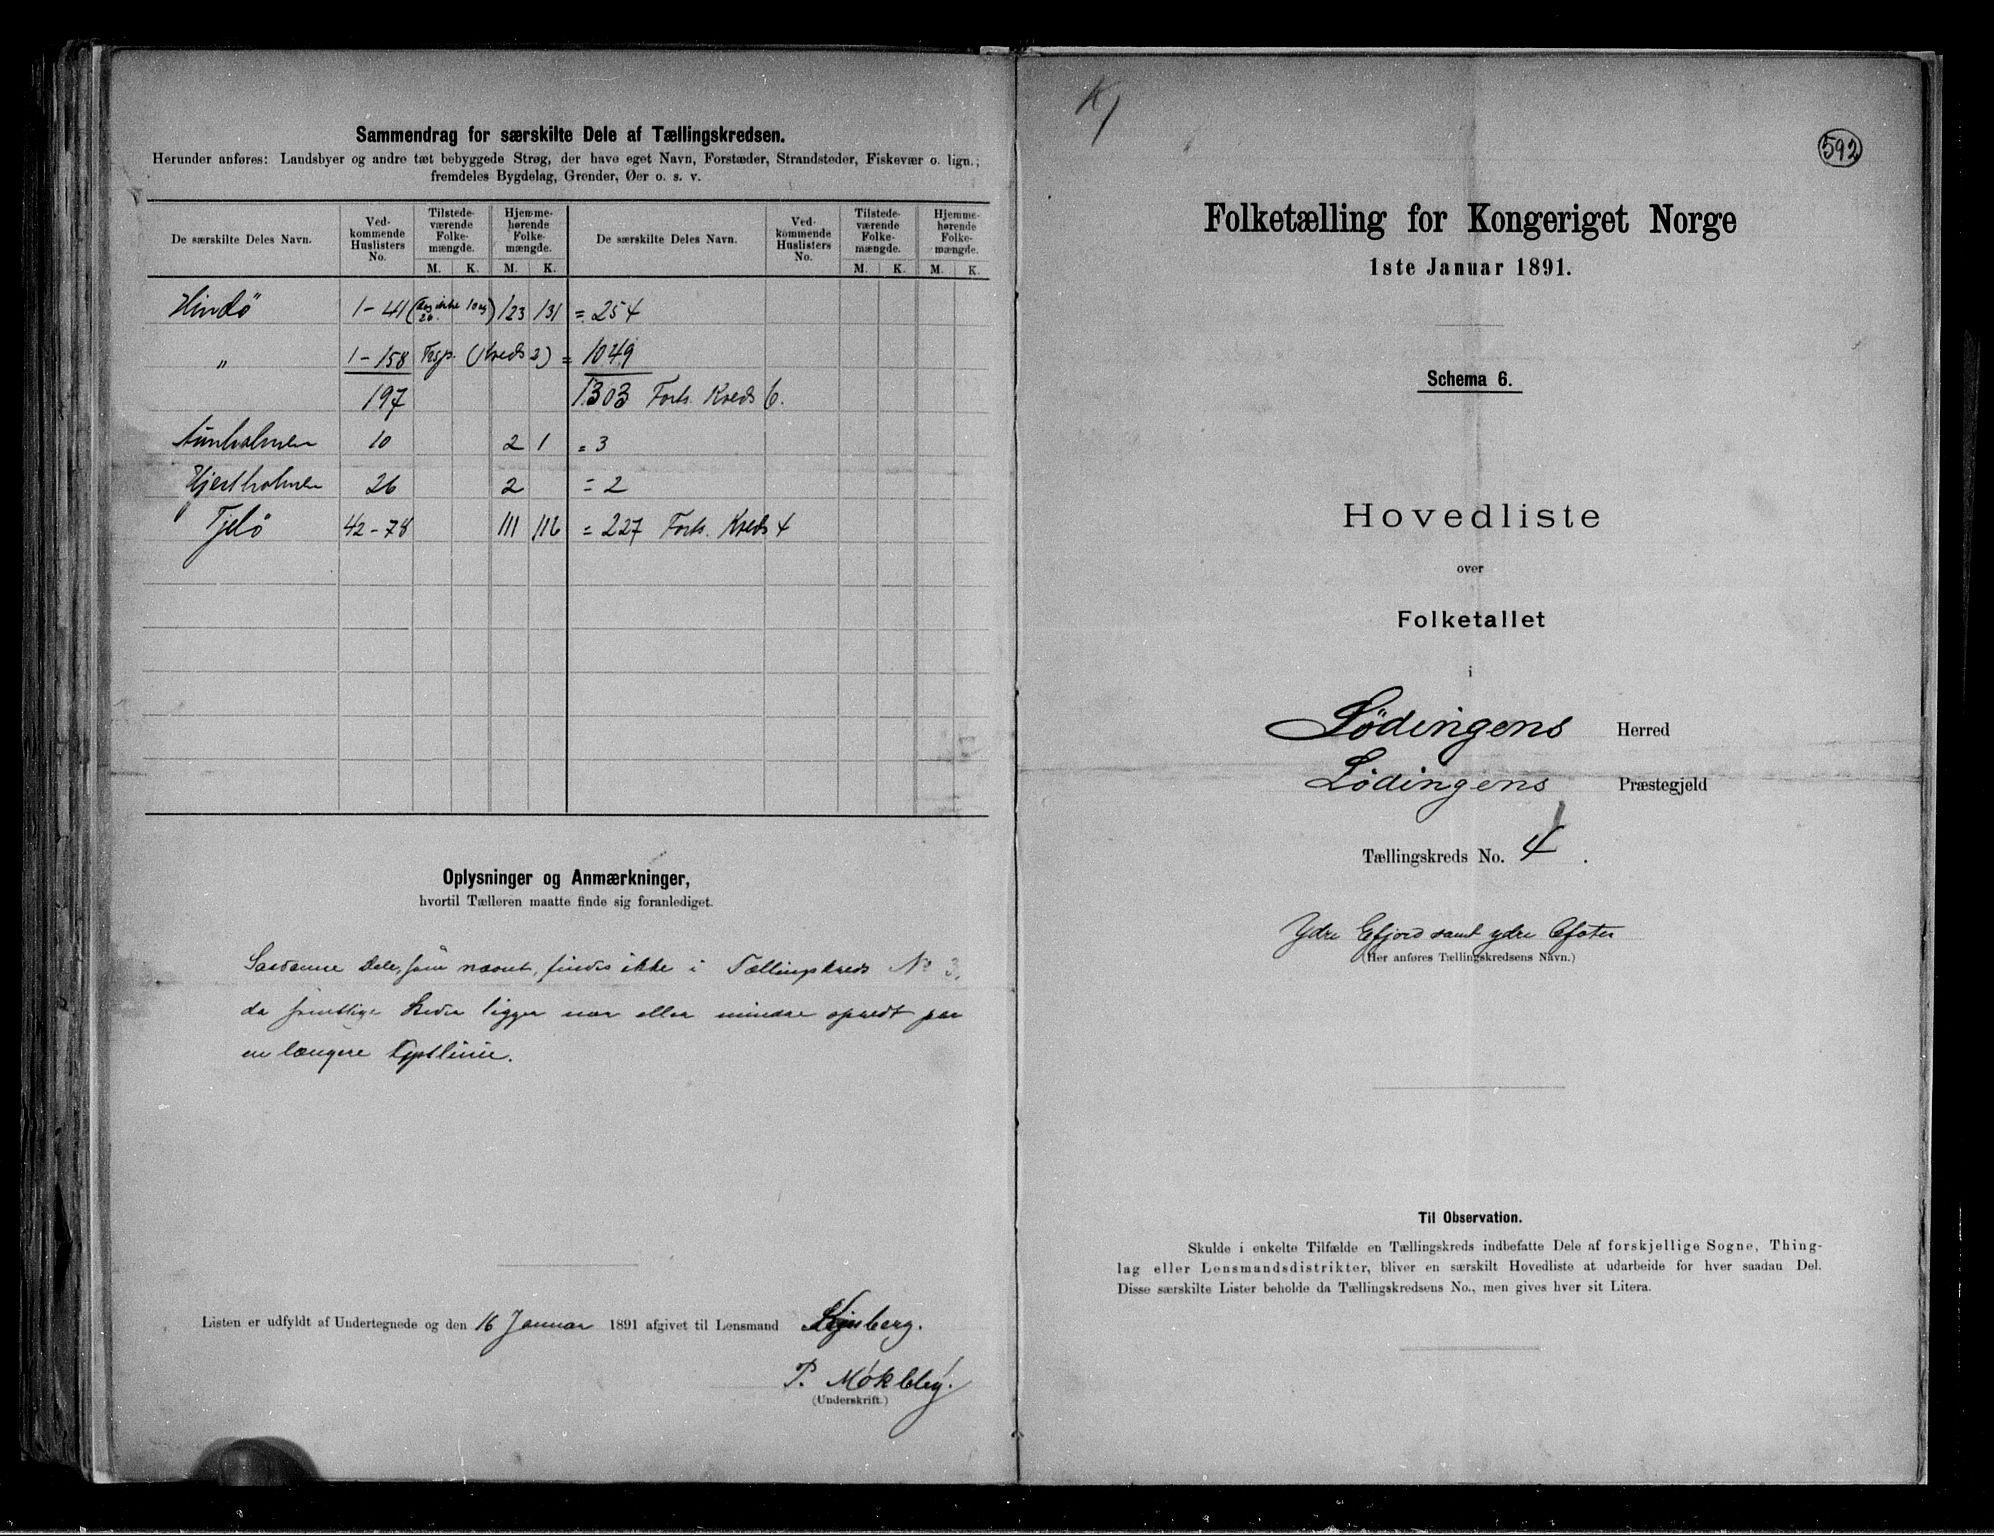 Sammendrag for særskilte Dele af Tællingskredsen.
Herunder anføres: Landsbyer og andre tæt bebyggede Strøg, der have eget Navn, Forstæder, Strandsteder, Fiskevær o. lign.;
fremdeles Bygdelag, Grender, Øer o. s. v.
De særskilte Deles Navn. Ved-kommende Huslisters No. Tilstede-værende Folke-mængde. Hjemme-hørende Folke-mængde. De særskilte Deles Navn. Ved-kommende Huslisters No. Tilstede-værende Folke-mængde. Hjemme-hørende Folke-mængde.
M. K. M. K. M. K. M. K.
Hindö 1-41 123 131 = 254
" 1-158 Tsp. (Kreds 2) = 1049
197 1303 Forts. Kreds 6.
10 2 1 = 3
Hjertholmen 26 2 = 2
Tjelö 42-78 111 116 = 227 Forts. Kreds 4
Oplysninger og Anmærkninger,
hvortil Tælleren maatte finde sig foranlediget.
Saadanne Dele, som nævnt, findes ikke i Tællingskreds No 3,
da samtlige Steder ligger mer eller mindre spredt paa
en længere Kystlinie.
Listen er udfyldt af Undertegnede og den 16 Januar 1891 afgivet til Lensmand
P. Møkleby.
(Underskrift.)
592
Folketælling for Kongeriget Norge
1ste Januar 1891.
Schema 6.
Hovedliste
over
Folketallet
i
Lödingens Herred
Lödingens Præstegjeld
Tællingskreds No. 4.
Ydre Efjord samt ydre Ofoten
(Her anføres Tællingskredsens Navn.)
Til Observation.
Skulde i enkelte Tilfælde en Tællingskreds indbefatte Dele af forskjellige Sogne, Thing-
lag eller Lensmandsdistrikter, bliver en særskilt Hovedliste at udarbeide for hver saadan Del.
Disse særskilte Lister beholde da Tællingskredsens No., men gives hver sit Litera.